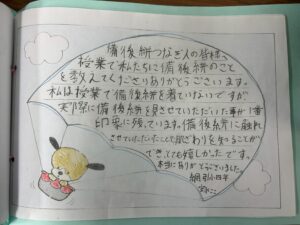 備後絣つなぎ人の皆様へ
授業で私たちに備後絣のこと
を教えてくださりありがとうございます。
私は授業で備後絣を着ていないですが
実際に備後絣を見させていただいた事が1番
印象に残っています。備後絣に触れ
させていただいたことで肌ざわりを知ることが
できとても嬉しかったです。
本当にありがとうございました
網引小四年